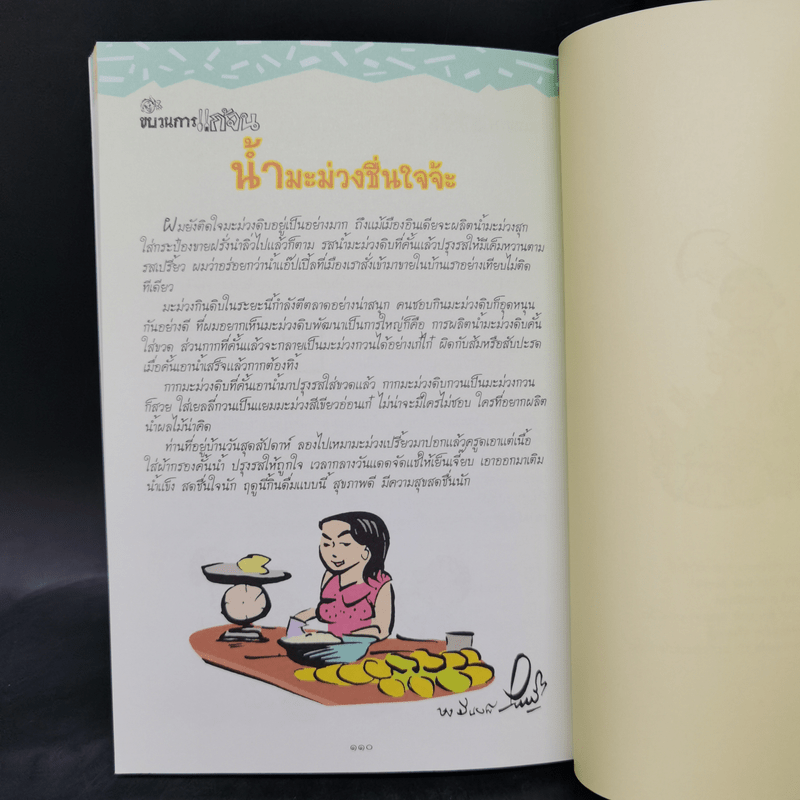 ขบวนการแก้จน
น้ำมะม่วงชื่นใจจ้ะ
ผมยังติดใจมะม่วงดิบอยู่เป็นอย่างมาก ถึงแม้เมืองอินเดียจะผลิตน้ำมะม่วงสุก
ใส่กระป๋องขายฝรั่งนำลิ่วไปแล้วก็ตาม รสน้ำมะม่วงดิบที่คั้นแล้วปรุงรสให้มีเค็มหวานตาม
รสเปรี้ยว ผมว่าอร่อยกว่าน้ำแอ๊ปเปิ้ลที่เมืองเราสั่งเข้ามาขายในบ้านเราอย่างเทียบไม่ติด
ทีเดียว
มะม่วงกินดิบในระยะนี้กำลังตีตลาดอย่างน่าสนุก คนชอบกินมะม่วงดิบก็อุดหนุน
กันอย่างดี ที่ผมอยากเห็นมะม่วงดิบพัฒนาเป็นการใหญ่ก็คือ การผลิตน้ำมะม่วงดิบคั้น
ใส่ขวด ส่วนกากที่คั้นแล้วจะกลายเป็นมะม่วงกวนได้อย่างเก๋ไก๋ ผิดกับส้มหรือสับปะรด
เมื่อคั้นเอาน้ำเสร็จแล้วกากต้องทิ้ง
กากมะม่วงดิบที่คั้นเอาน้ำมาปรุงรสใส่ขวดแล้ว กากมะม่วงดิบกวนเป็นมะม่วงกวน
ก็สวย ใส่เยลลี่กวนเป็นแยมมะม่วงสีเขียวอ่อนเก๋ ไม่น่าจะมีใครไม่ชอบ ใครที่อยากผลิต
น้ำผลไม้น่าคิด
ท่านที่อยู่บ้านวันสุดสัปดาห์ ลองไปเหมามะม่วงเปรี้ยวมาปอกแล้วครูดเอาแต่เนื้อ
ใส่ผ้ากรองคั้นน้ำ ปรุงรสให้ถูกใจ เวลากลางวันแดดจัดแช่ให้เย็นเจี๊ยบ เอาออกมาเติม
น้ำแข็ง สดชื่นใจนัก ฤดูนี้กิ้นดื่มแบบนี้ สุขภาพดี มีความสุขสดชื่นนัก
๑๑๐